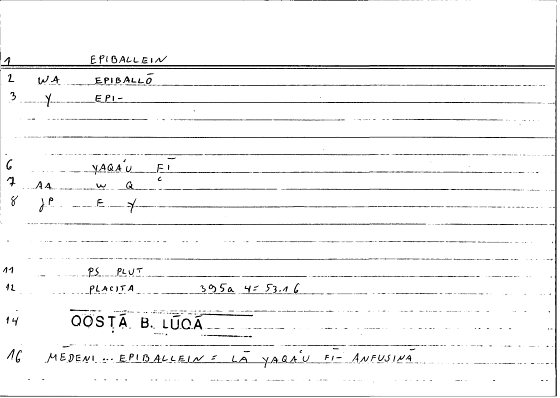 1 EPIBALLEIN
2 WA EPIBALLŌ
3 Y EPI-
6 YAQAʿU FĪ
7 AA W Q ʿ
8 JP F Y
11 PS PLUT
12 PLACITA 395a 4 = 53.16
14 QOSṬĀ B. LŪQĀ
16 MĒDENI ... EPIBALLEIN = LĀ YAQAʿU FĪ- ANFUSINĀ